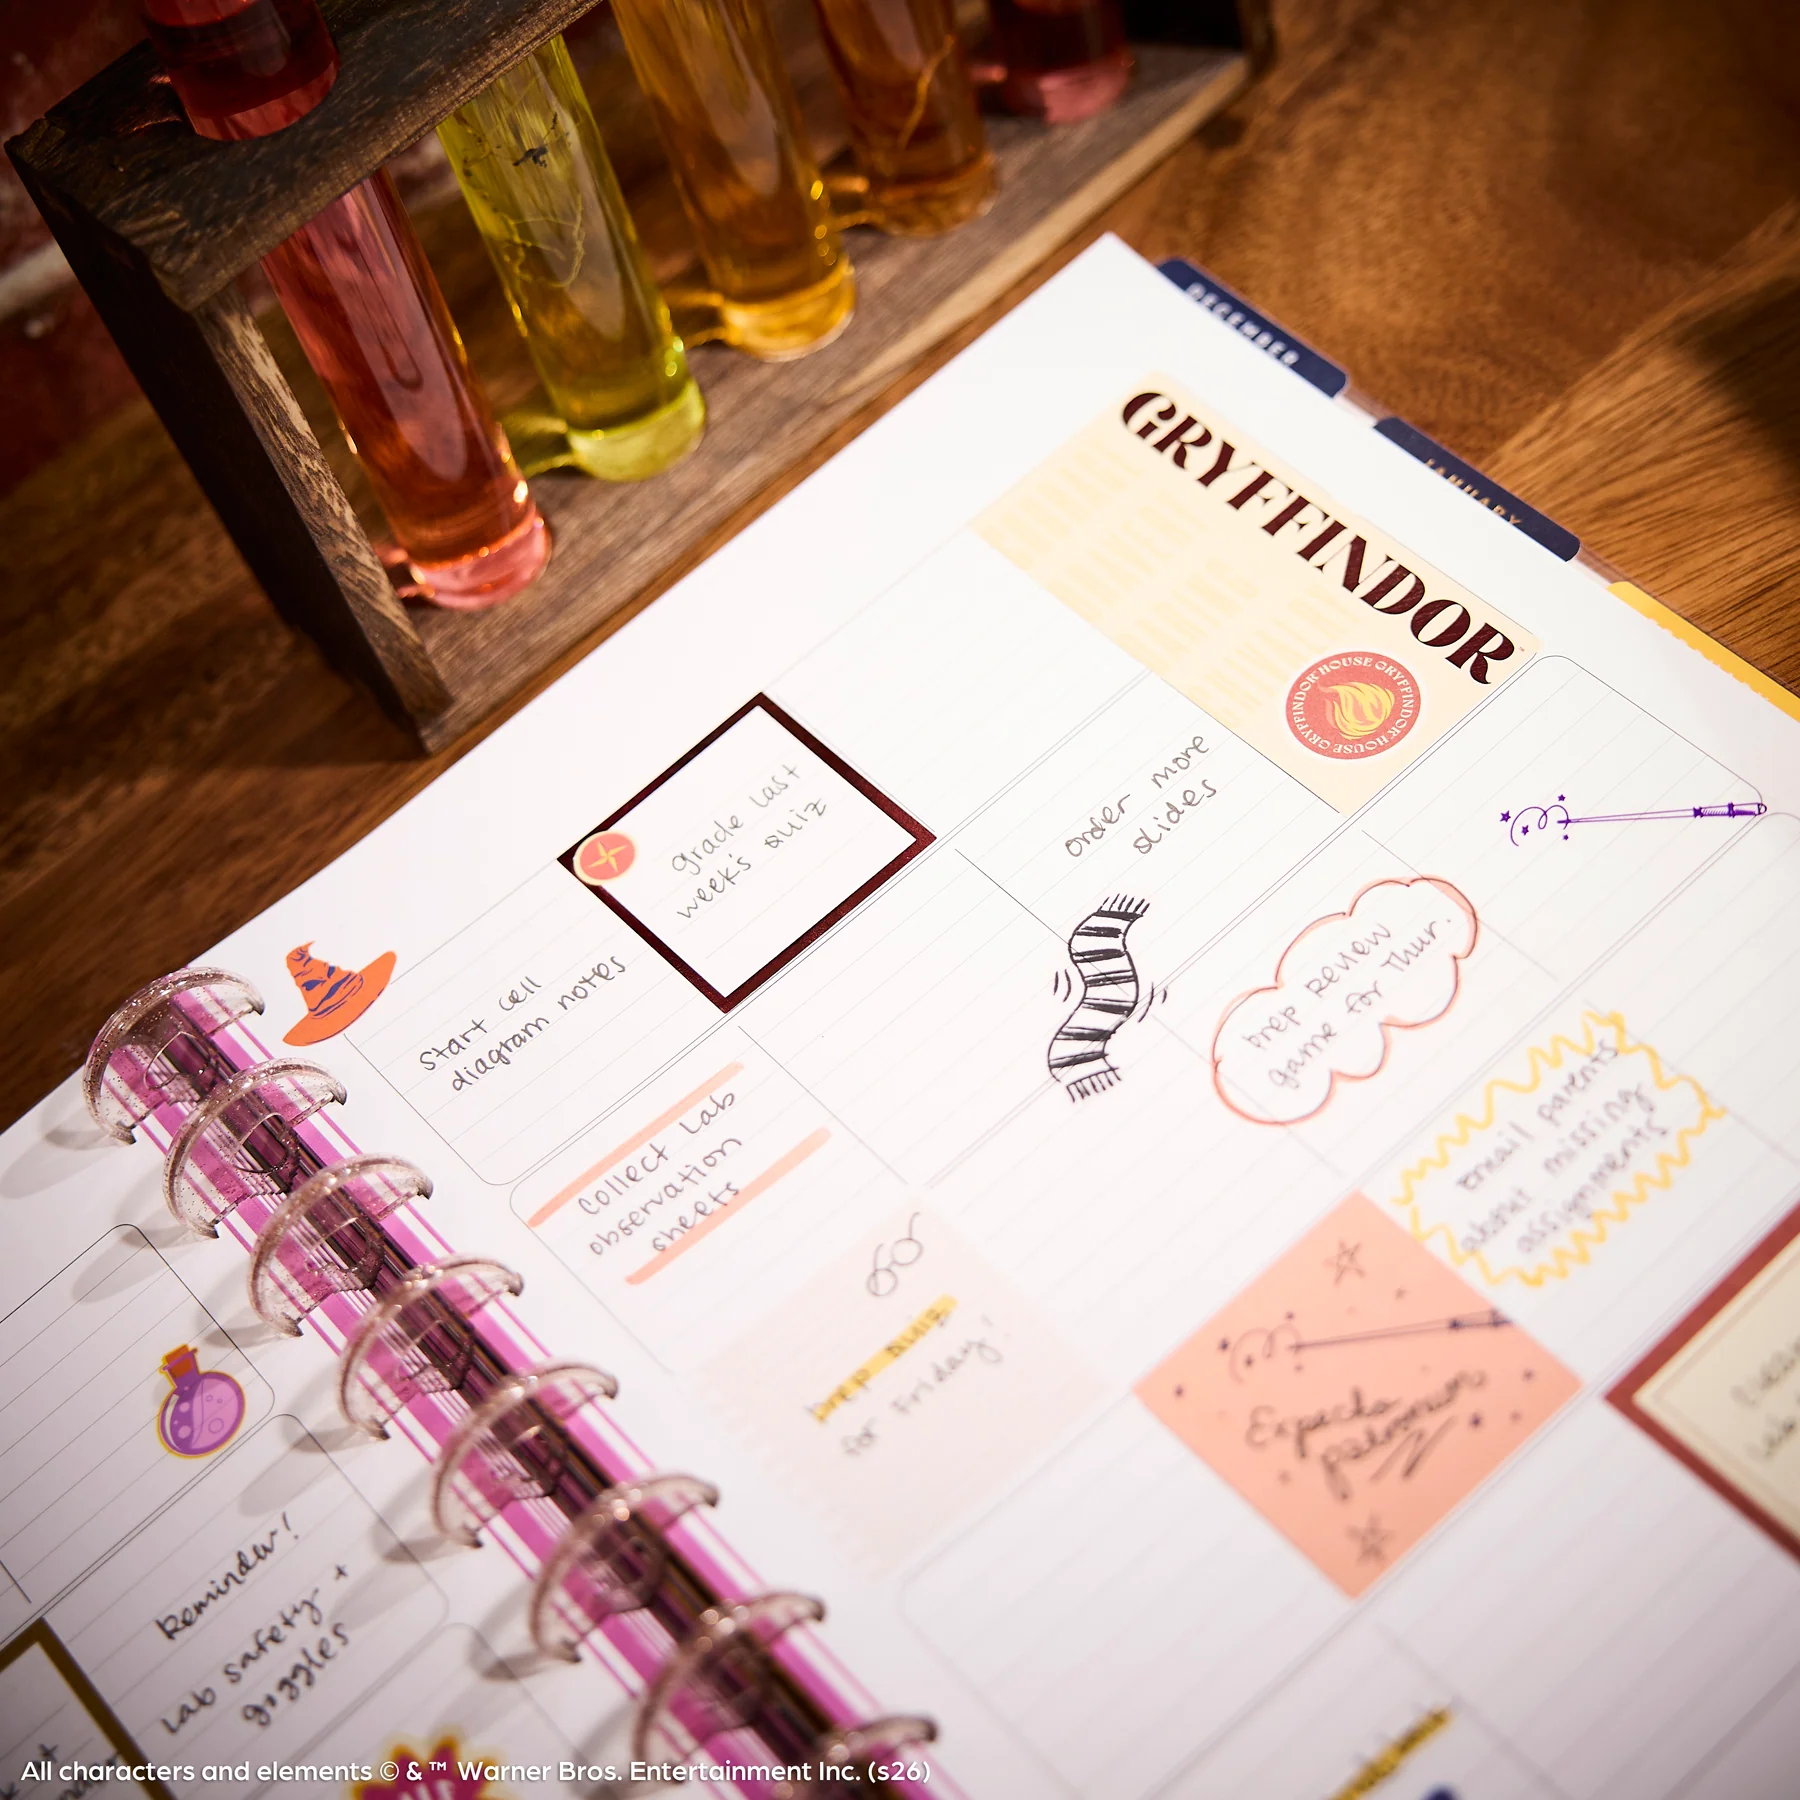 DECEMBER
JANUARY
GRYFFINDOR
GRYFFINDOR HOUSE GRYFFINDOR HOUSE
grade last
week's quiz
order more
slides
start cell
diagram notes
prep review
game for Thur.
collect lab
observation
sheets
email parents
about missing
assignments
prep quiz
for Friday!
Expecto
patronum
Reminder!
Lab safety +
goggles
All characters and elements © & ™ Warner Bros. Entertainment Inc. (s26)